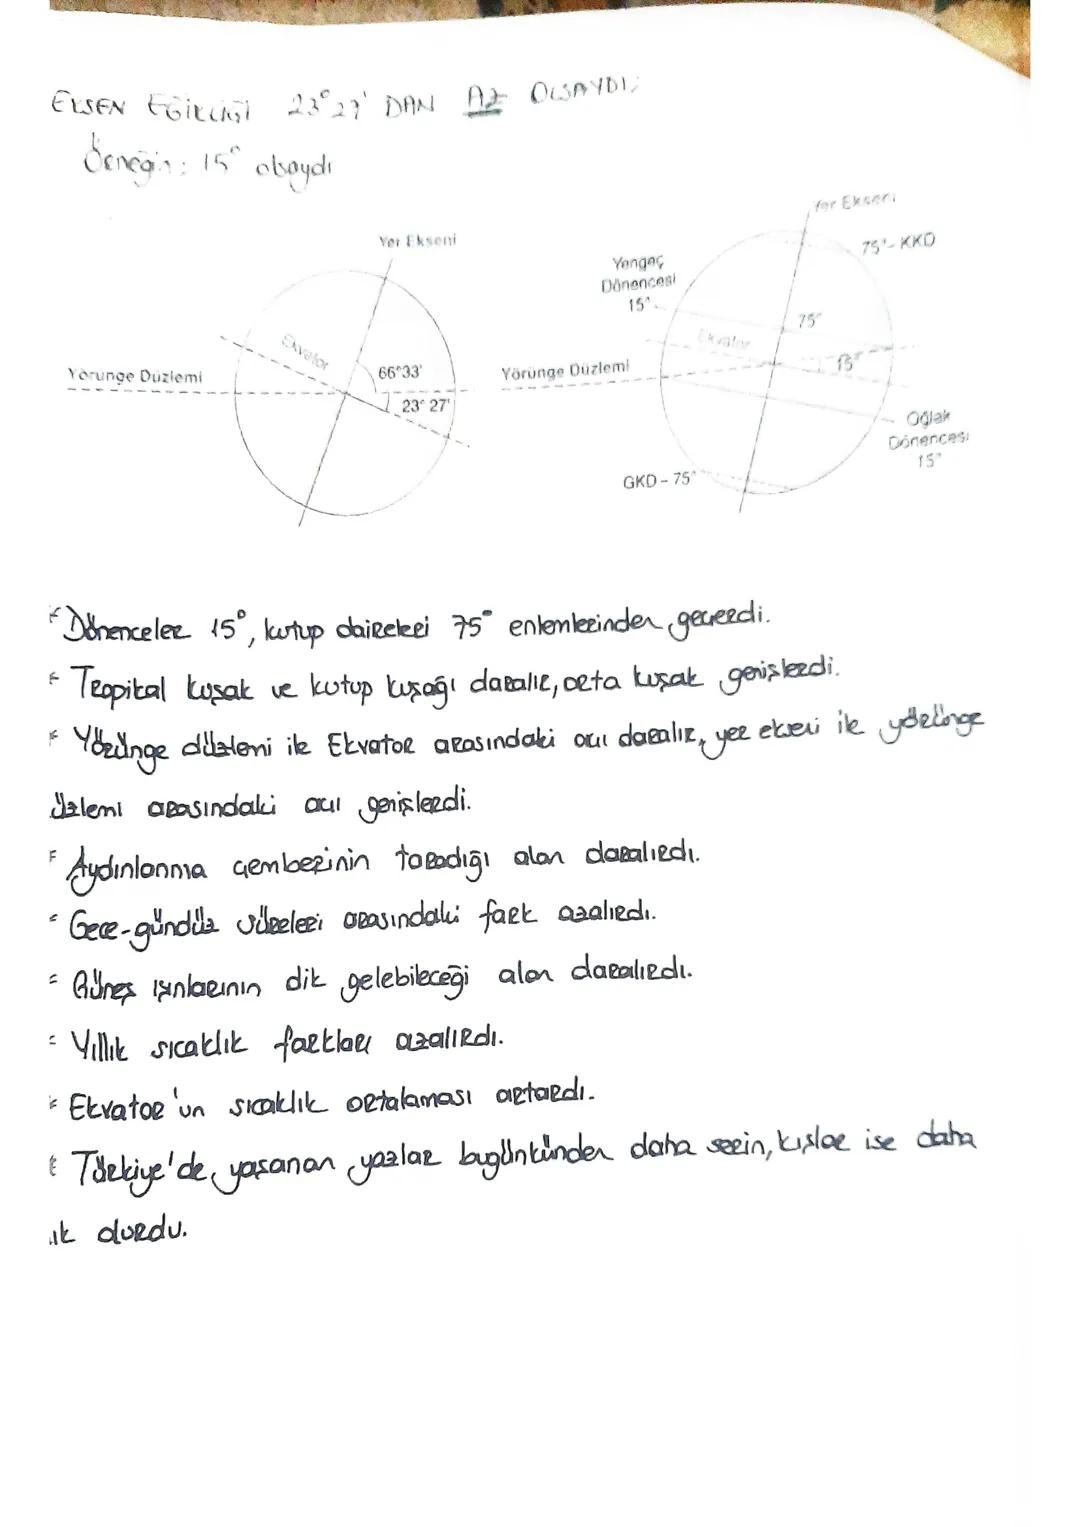 EKSEN EĞİKLİĞİ 23°27' DAN AZ OLSAYDI;
Örneğin: 15° olsaydı
Yer Ekseni
Yer Ekseni
75°- KKD
Yengeç
Dönencesi
15°
75°
Ekvator
Ekvator
66°33'
15°
Yörünge Düzlemi
Yörünge Düzlemi
23° 27'
Oğlak
Dönencesi
15°
GKD - 75°
* Dönenceler 15°, kutup daireleri 75° enlemlerinden geçerdi.
* Tropikal kuşak ve kutup kuşağı daralır, orta kuşak genişlerdi.
* Yörünge düzlemi ile Ekvator arasındaki açı daralır, yer ekseni ile yörünge
üzlemi arasındaki açı genişlerdi.
* Aydınlanma çemberinin taradığı alan daralırdı.
* Gece-gündüz süreleri arasındaki fark azalırdı.
* Güneş ışınlarının dik gelebileceği alan daralırdı.
* Yıllık sıcaklık farkları azalırdı.
* Ekvator'un sıcaklık ortalaması artardı.
* Türkiye'de yaşanan yazlar bugünkünden daha serin, kışlar ise daha
ık olurdu.